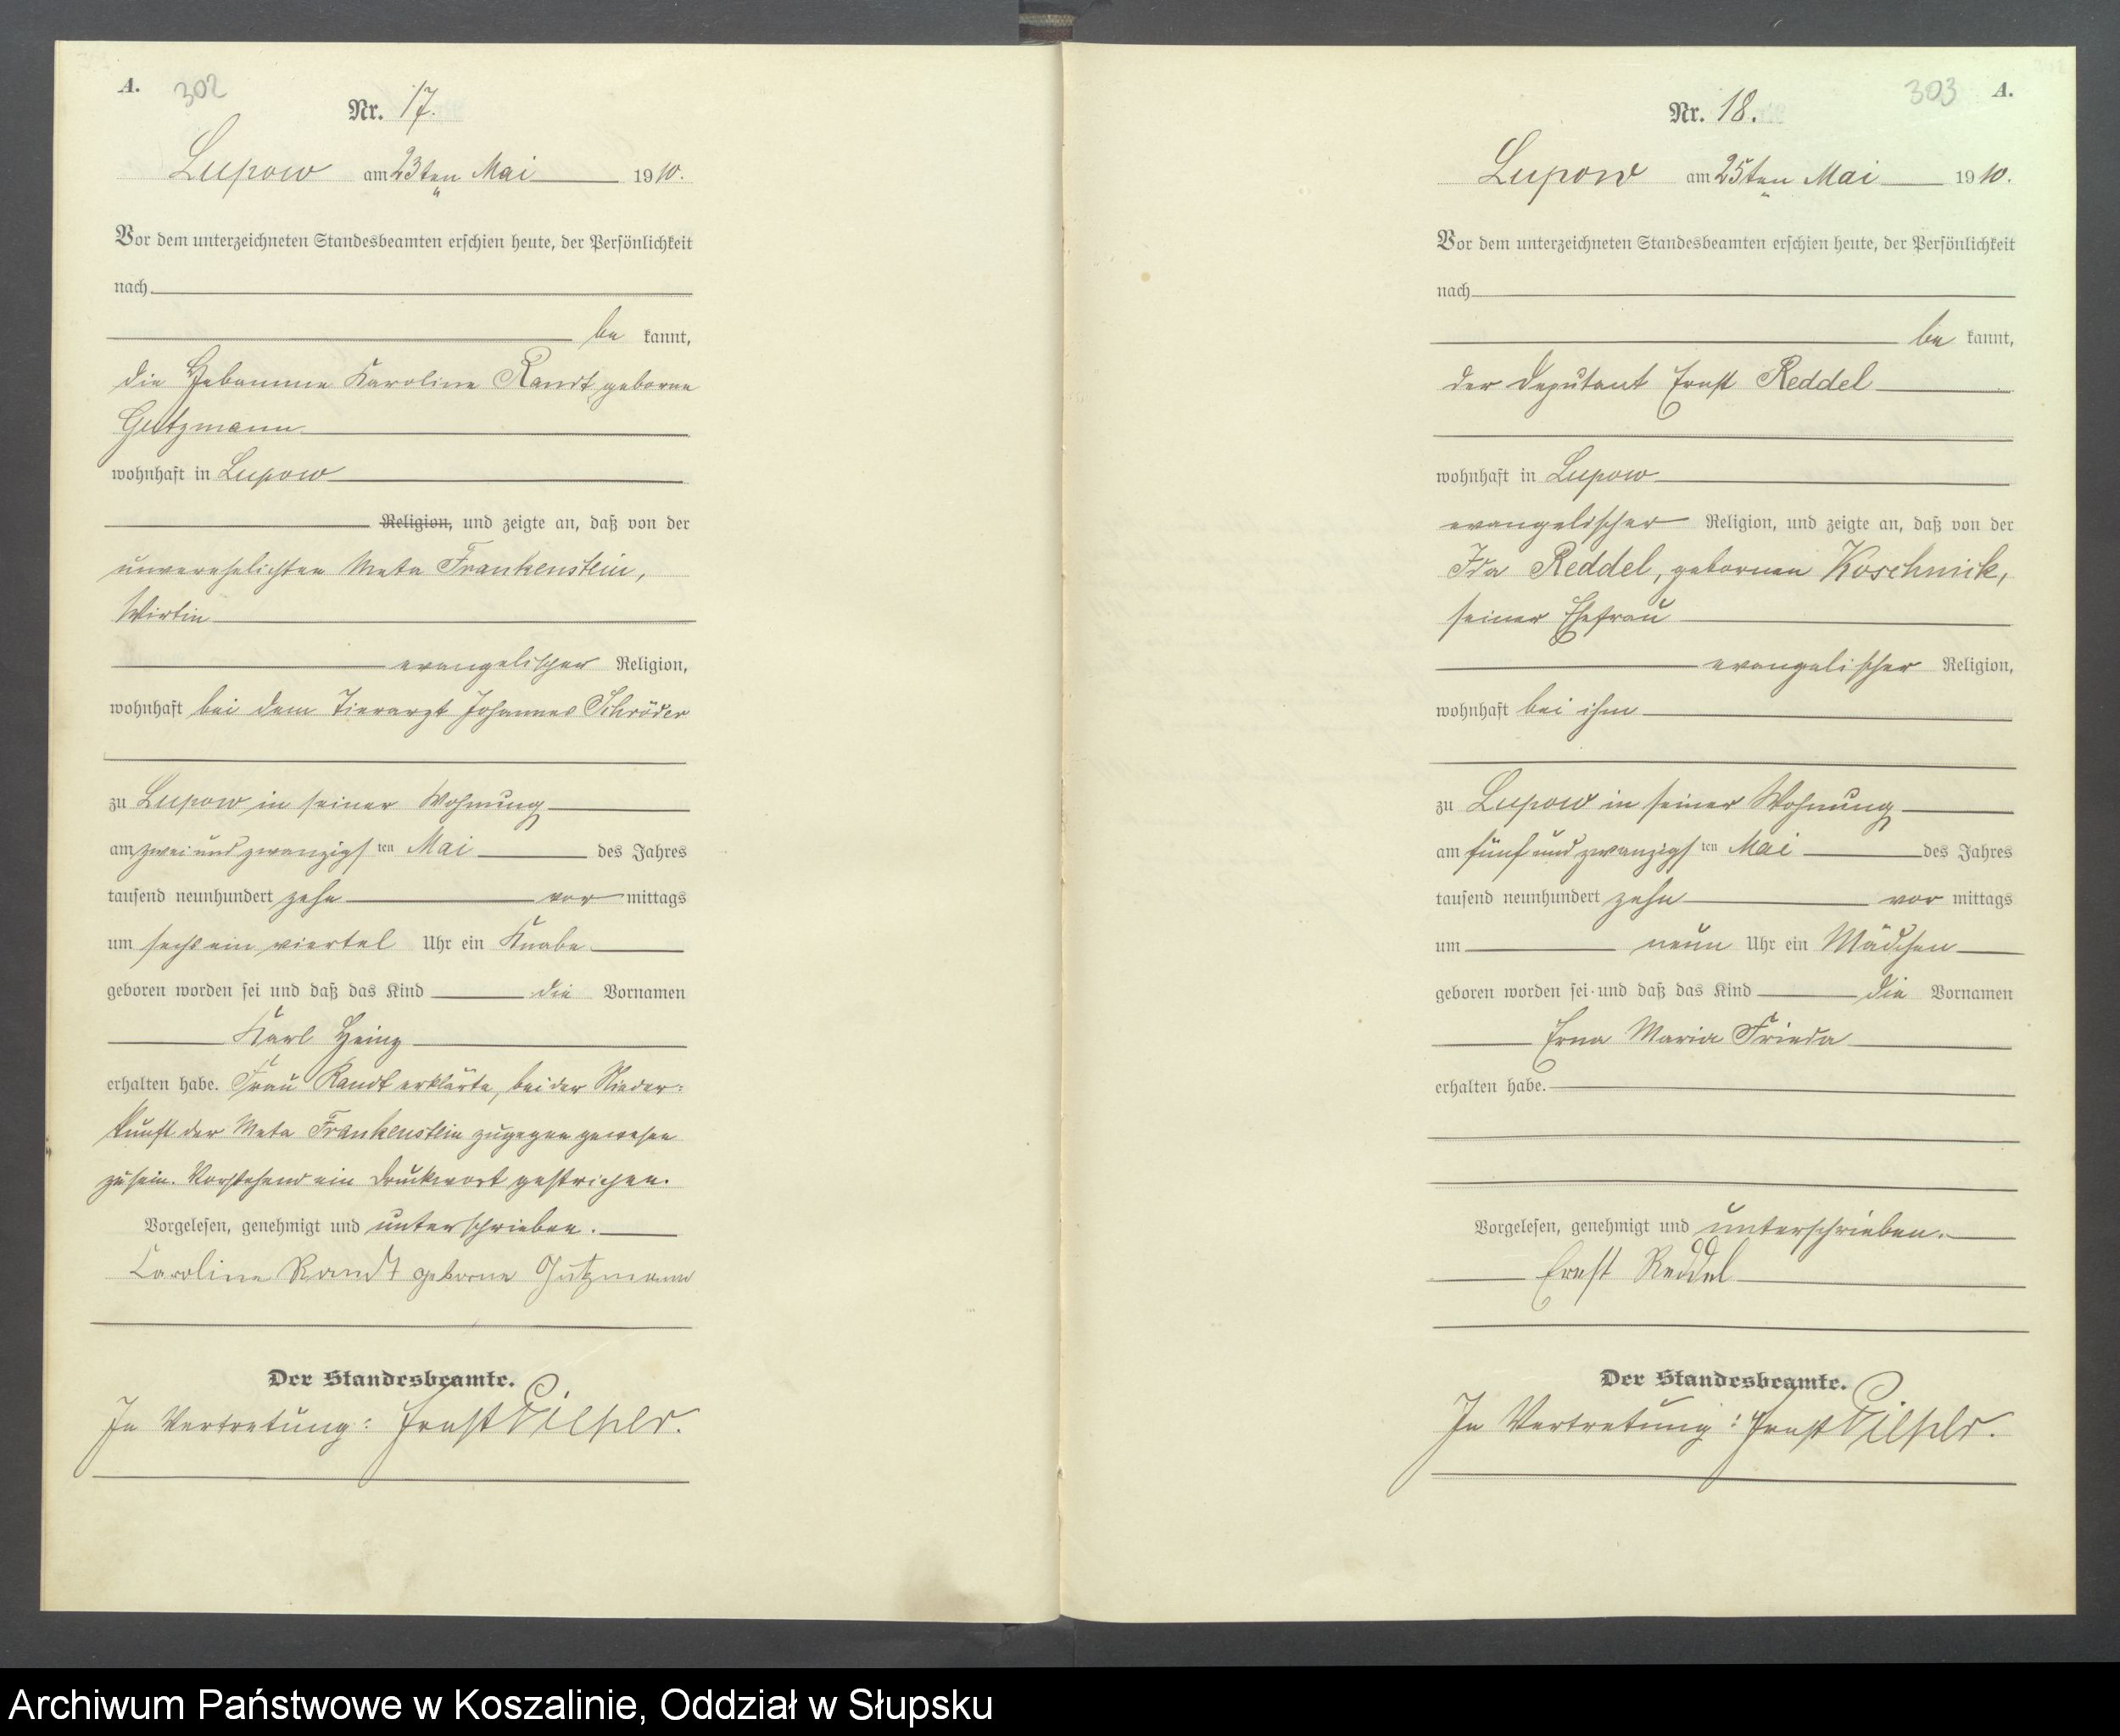 A. 302
Nr. 17.
Lupow am 23ten Mai 1910.
Vor dem unterzeichneten Standesbeamten erschien heute, der Persönlichkeit
nach
be kannt,
die Hebamme Karoline Randt, geborne
Gutzmann
wohnhaft in Lupow
Religion, und zeigte an, daß von der
unverehelichten Meta Frankenstein,
Wirtin
evangelischer Religion,
wohnhaft bei dem Tierarzt Johannes Schröder
zu Lupow in seiner Wohnung
am zwei und zwanzigsten Mai des Jahres
tausend neunhundert zehn vor mittags
um sechs ein viertel Uhr ein Knabe
geboren worden sei und daß das Kind die Vornamen
Karl Heinz
erhalten habe. Frau Randt erklärte, bei der Nieder-
kunft der Meta Frankenstein zugegen gewesen
zu sein. Vorstehend ein Druckwort gestrichen.
Vorgelesen, genehmigt und unterschrieben.
Caroline Randt geborne Gutzmann
Der Standesbeamte.
In Vertretung: Ernst
303 A.
Nr. 18.
Lupow am 25ten Mai 1910.
Vor dem unterzeichneten Standesbeamten erschien heute, der Persönlichkeit
nach
be kannt,
der Deputant Ernst Reddel
wohnhaft in Lupow
evangelischer Religion, und zeigte an, daß von der
Ida Reddel, gebornen Koschnick,
seiner Ehefrau
evangelischer Religion,
wohnhaft bei ihm
zu Lupow in seiner Wohnung
am fünf und zwanzigsten Mai des Jahres
tausend neunhundert zehn vor mittags
um neun Uhr ein Mädchen
geboren worden sei und daß das Kind die Vornamen
Erna Maria Frieda
erhalten habe.
Vorgelesen, genehmigt und unterschrieben.
Ernst Reddel
Der Standesbeamte.
In Vertretung: Ernst
Archiwum Państwowe w Koszalinie, Oddział w Słupsku